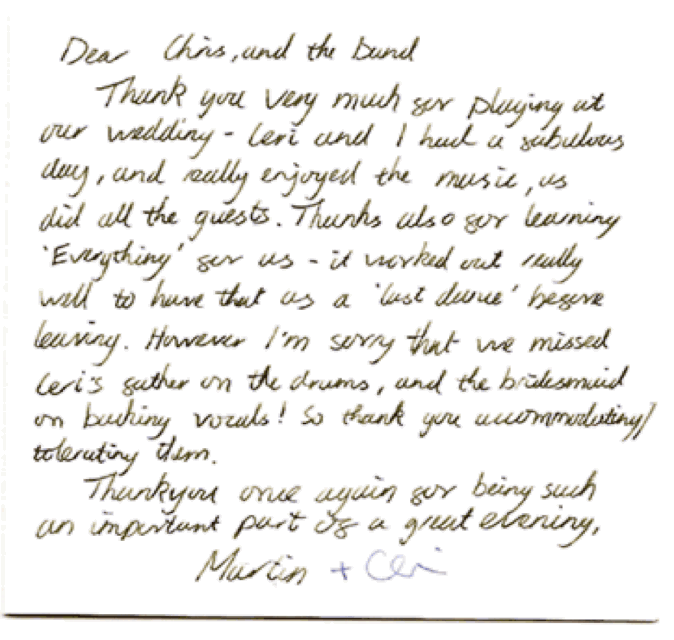 Dear Chris, and the band
Thank you very much for playing at
our wedding - Ceri and I had a fabulous
day, and really enjoyed the music, as
did all the guests. Thanks also for learning
'Everything' for us - it worked out really
well to have that as a 'last dance' before
leaving. However I'm sorry that we missed
Ceri's father on the drums, and the bridesmaid
on backing vocals! So thank you accommodating/
tolerating them.
Thankyou once again for being such
an important part of a great evening,
Martin + Ceri